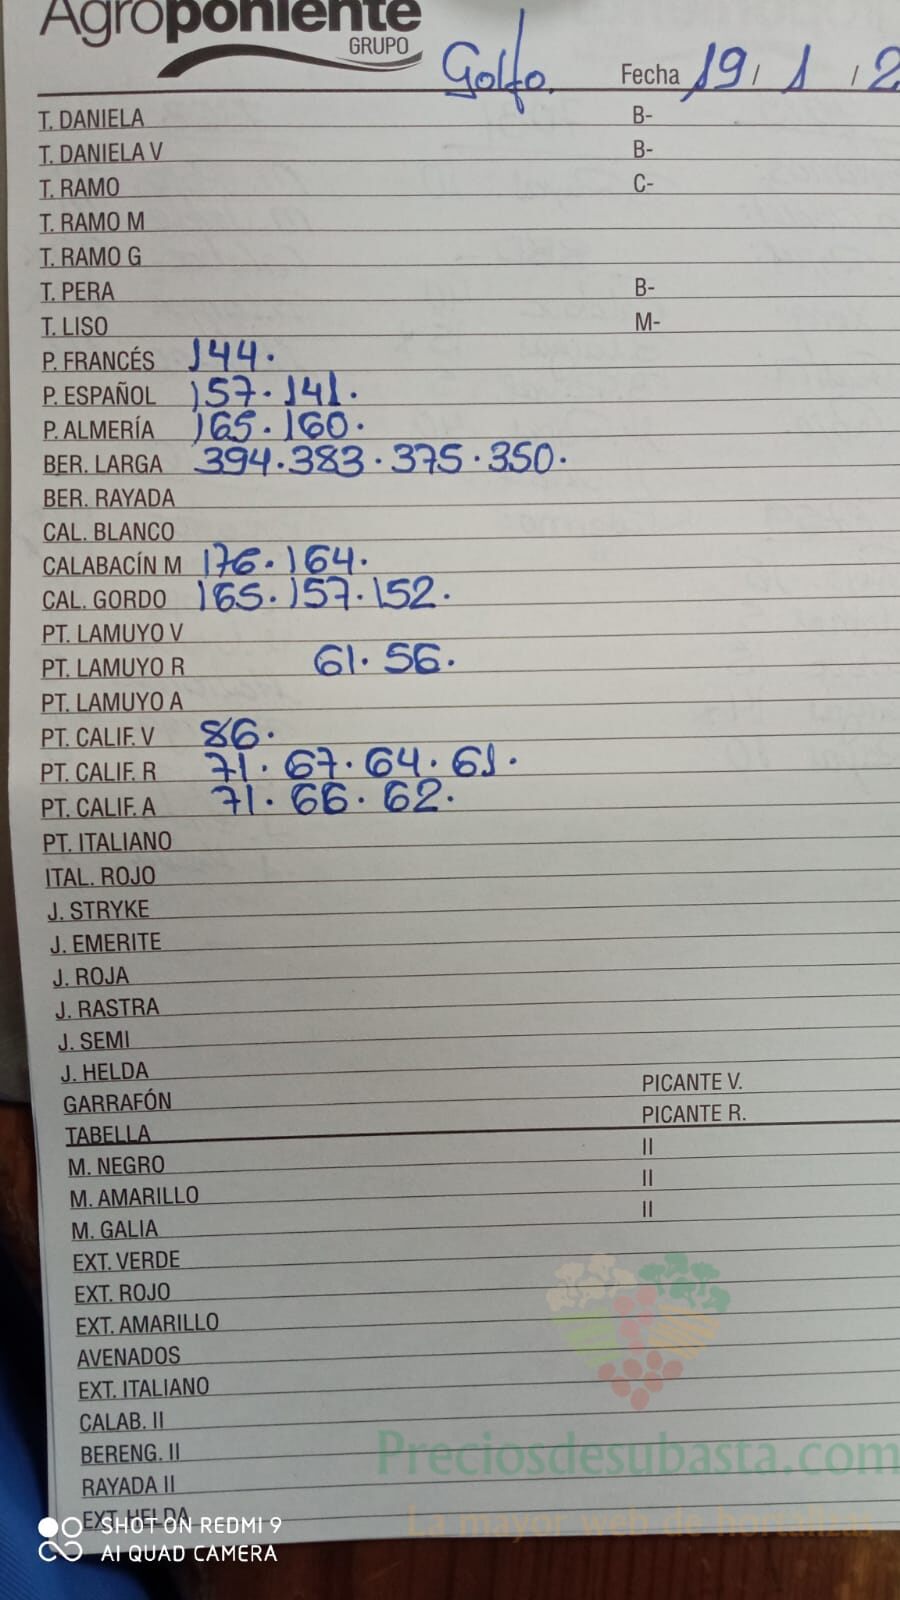 Agroponiente
GRUPO
Golfo. Fecha 19/ 1 / 2
T. DANIELA B-
T. DANIELA V B-
T. RAMO C-
T. RAMO M
T. RAMO G
T. PERA B-
T. LISO M-
P. FRANCÉS 144.
P. ESPAÑOL 157. 141.
P. ALMERÍA 165. 160.
BER. LARGA 394. 383. 375. 350.
BER. RAYADA
CAL. BLANCO
CALABACÍN M 176. 164.
CAL. GORDO 165. 157. 152.
PT. LAMUYO V
PT. LAMUYO R 61. 56.
PT. LAMUYO A
PT. CALIF. V 86.
PT. CALIF. R 71. 67. 64. 61.
PT. CALIF. A 71. 66. 62.
PT. ITALIANO
ITAL. ROJO
J. STRYKE
J. EMERITE
J. ROJA
J. RASTRA
J. SEMI
J. HELDA
GARRAFÓN PICANTE V.
TABELLA PICANTE R.
M. NEGRO II
M. AMARILLO II
M. GALIA II
EXT. VERDE
EXT. ROJO
EXT. AMARILLO
AVENADOS
EXT. ITALIANO
CALAB. II
BERENG. II
RAYADA II
EXT. HELDA
Preciosdesubasta.com
La mayor web de hortalizas
SHOT ON REDMI 9
AI QUAD CAMERA